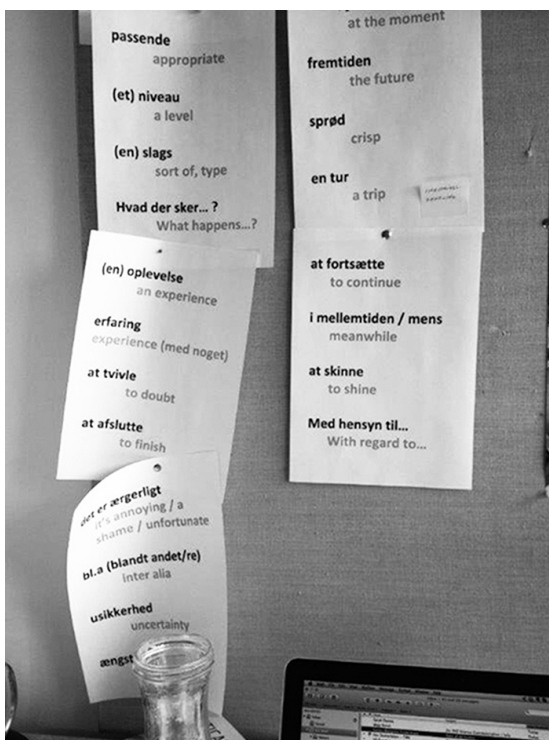 passende
appropriate
(et) niveau
a level
(en) slags
sort of, type
Hvad der sker... ?
What happens...?
(en) oplevelse
an experience
erfaring
experience (med noget)
at tvivle
to doubt
at afslutte
to finish
det er ærgerligt
it's annoying / a
shame / unfortunate
bl.a (blandt andet/re)
inter alia
usikkerhed
uncertainty
ængst
at the moment
fremtiden
the future
sprød
crisp
en tur
a trip
at fortsætte
to continue
i mellemtiden / mens
meanwhile
at skinne
to shine
Med hensyn til...
With regard to...